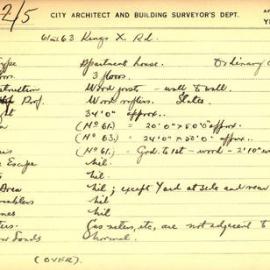 2/5
CITY ARCHITECT AND BUILDING SURVEYOR'S DEPT.
61 & 63 Kings X. Rd.
Type Apartment house. Ordinary
3 floors.
Wood joists - wall to wall.
Roof. Wood rafters. Slates.
34'0" approx..
Area (No 61.) = 20'0" x 50'0" approx.
(No 63.) = 24'0" x 50'0" approx.
(No 61.) - Grd. to 1st - wood - 2'10"
Escape Nil.
Nil.
Area Nil; except Yard at side and rear
Nil.
Nil.
Gas meters, etc, are not adjacent to
Normal.
(OVER).